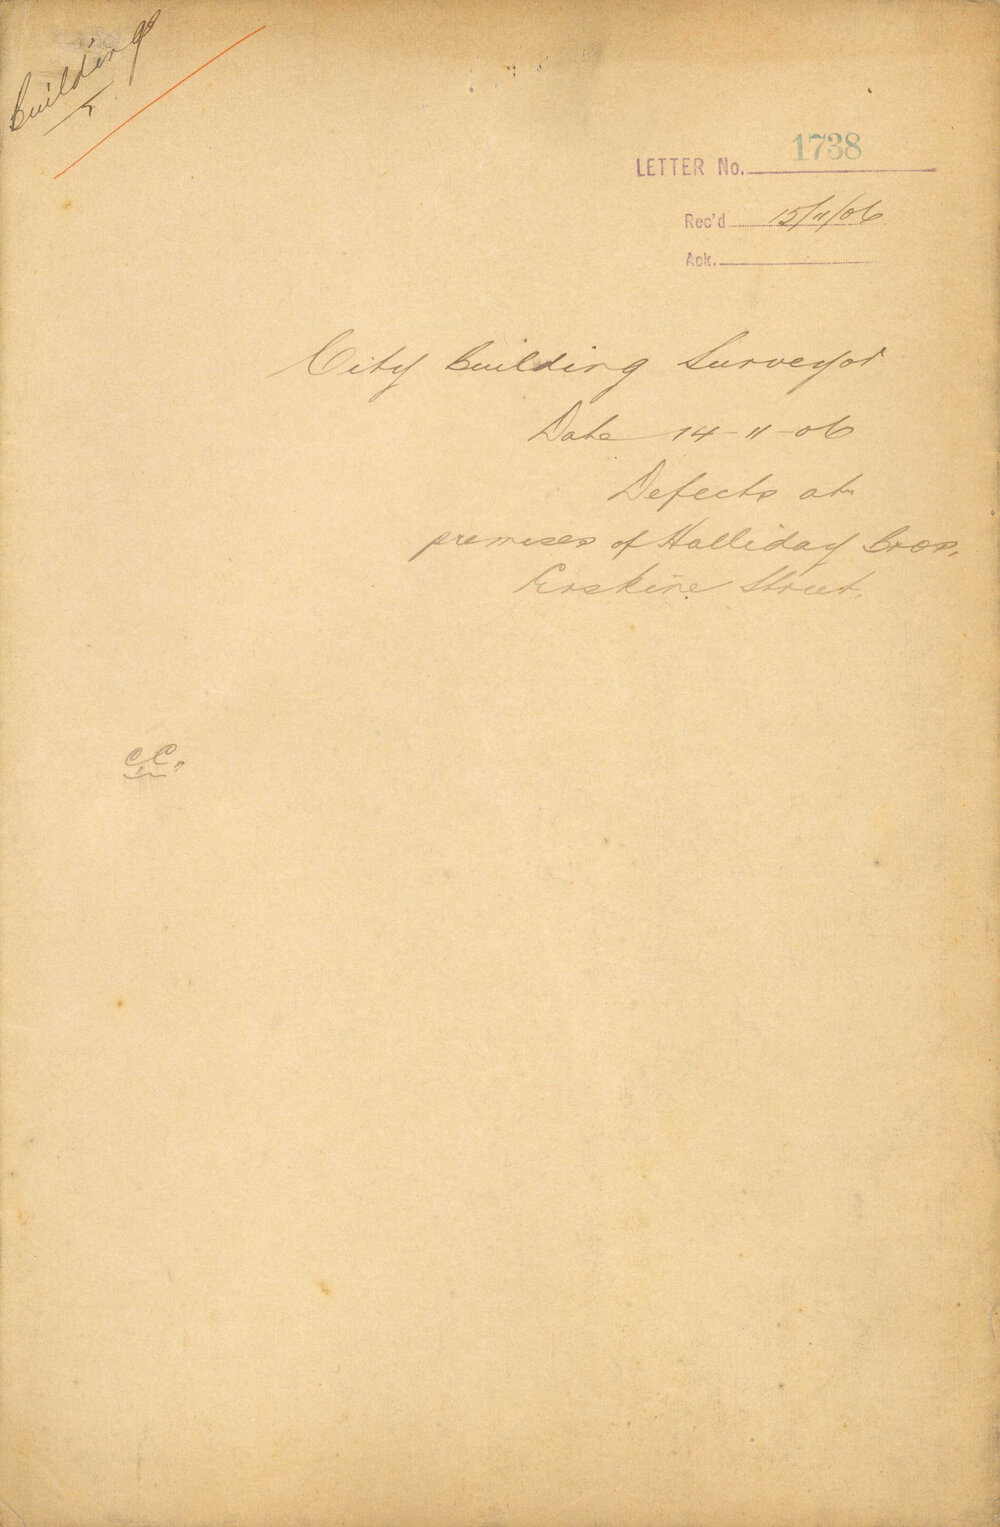 Building
LETTER No. 1738
Rec'd 15/11/06
Ack.
City Building Surveyor
Date 14-11-06
Defects at
premises of Halliday Bros,
Erskine Street.
CC.